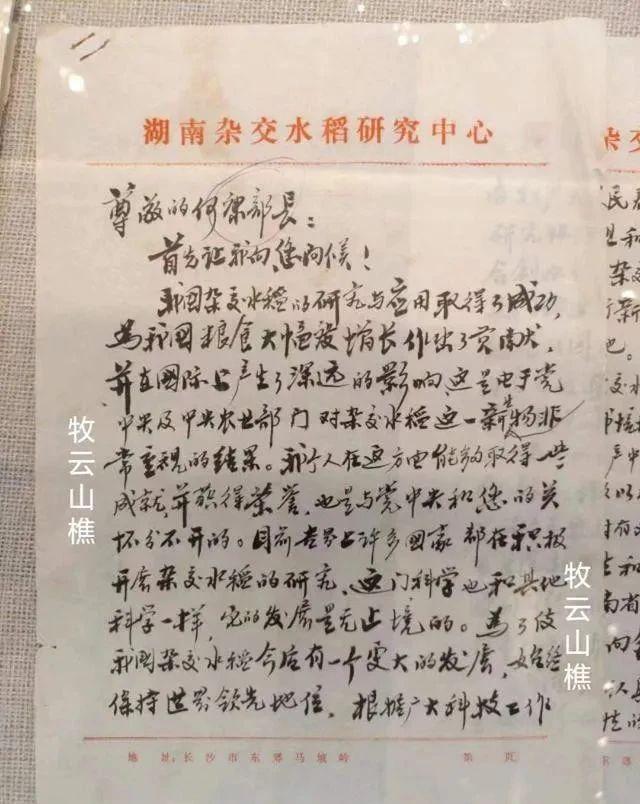 湖南杂交水稻研究中心
尊敬的何康部长：
首先让我向您问候！
我国杂交水稻的研究与应用取得了成功，
为我国粮食大幅度增长作出了贡献，
并在国际上产生了深远的影响，这是由于党
中央及中央农业部门对杂交水稻这一新生物非
常重视的结果。我个人在这方面能够取得一些
成就，并获得荣誉，也是与党中央和您的关
怀分不开的。目前世界上许多国家都在积极
开展杂交水稻的研究，这门科学也和其他
科学一样，它的发展是无止境的。为了使
我国杂交水稻今后有一个更大的发展，始终
保持世界领先地位，根据广大科技工作
地址：长沙市东郊马坡岭 第 页
牧云山樵
牧云山樵